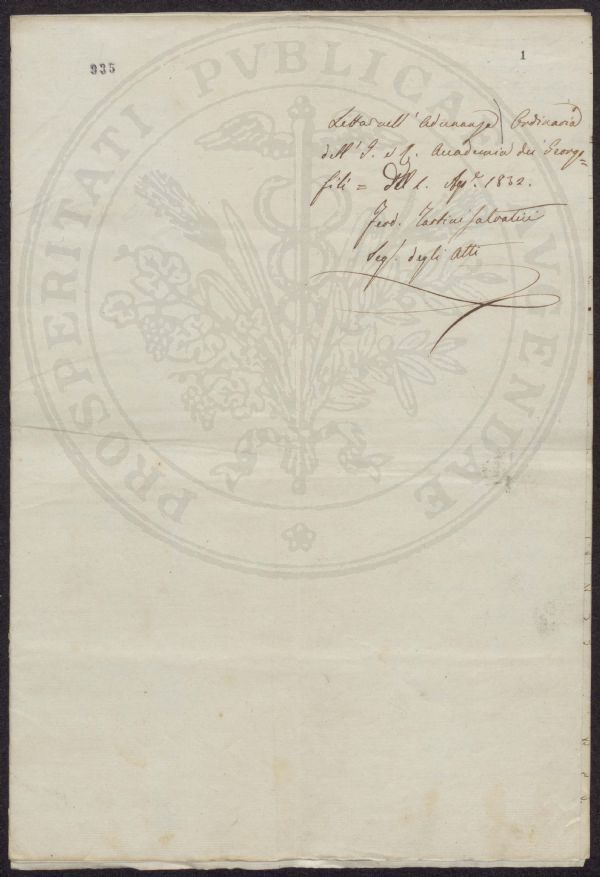 935
1
PROSPERITATI PVBLICAE AVGENDAE
Letta nell' Adunanza Ordinaria
dell' I. e R. Accademia dei Georgo=
fili = del 1. Ap.e 1832.
Ferd. Tartini Salvatici
Seg. degli Atti